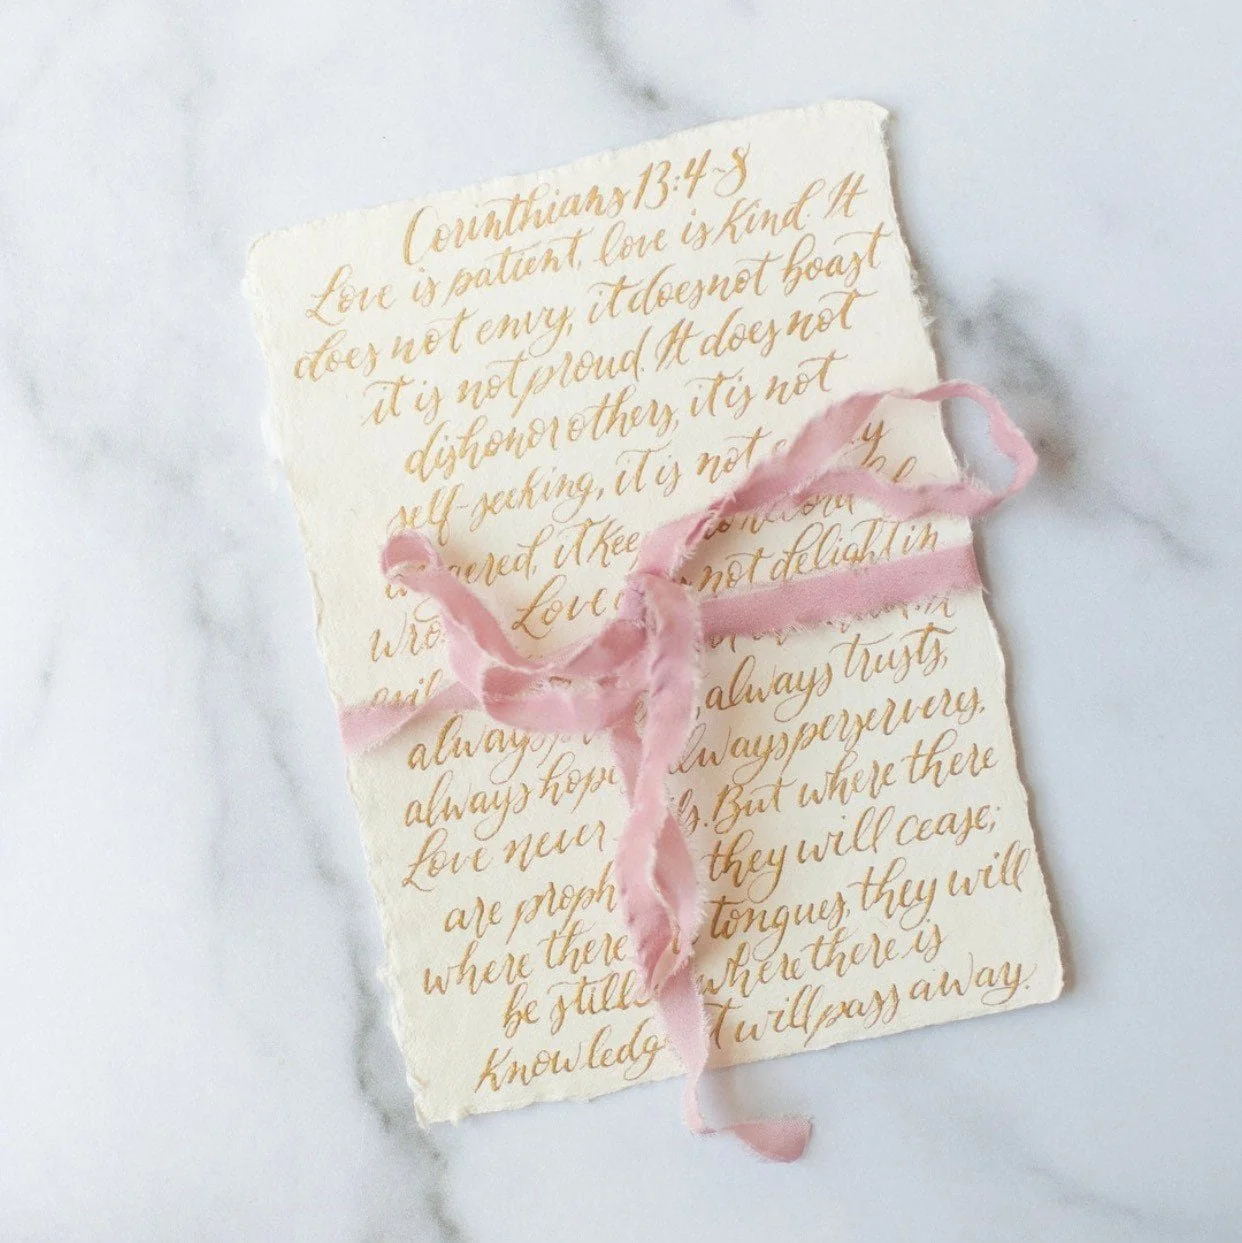 Corinthians 13:4-8
Love is patient, love is kind. It
does not envy, it does not boast
it is not proud. It does not
dishonor others, it is not
self-seeking, it is not
it no record
Love not delight in
always trusts,
always always perserveres.
Love never But where there
are they will cease;
where there tongues, they will
be where there is
will pass away.